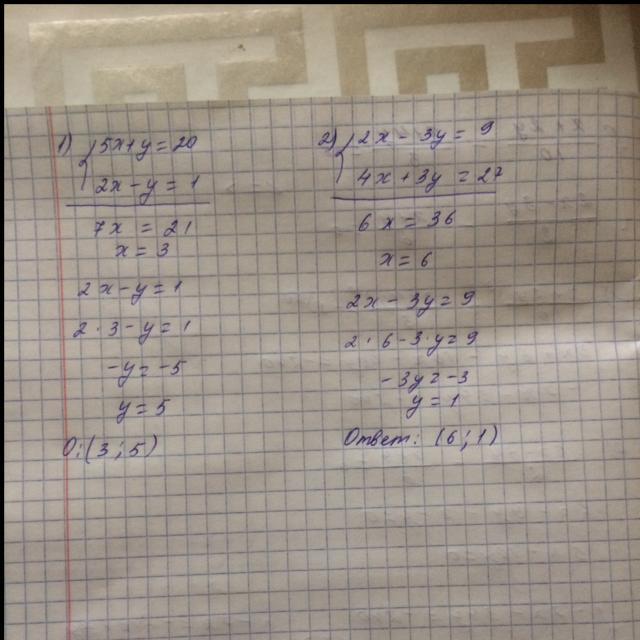 1) { 5x+y=20
2x-y=1
7x = 21
x=3
2x-y=1
2·3-y=1
-y=-5
y=5
О:(3;5)
2) { 2x-3y=9
4x+3y=27
6x=36
x=6
2x-3y=9
2·6-3·y=9
-3y=-3
y=1
Ответ: (6;1)